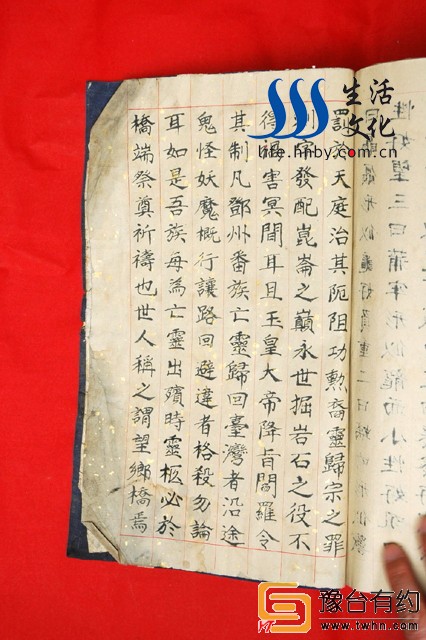 性好望三曰蒲牢形似龍而小性好
形似龜好負重二曰
罰於天庭治其阨阻功勲裔靈歸宗之罪
發配崑崙之巔永世掘岩石之役不
得禍害冥間耳且玉皇大帝降旨閻羅令
其制凡鄧州番族亡靈歸回臺灣者沿途
鬼怪妖魔概行讓路回避違者格殺勿論
耳如是吾族每為亡靈出殯時靈柩必於
橋端祭奠祈禱也世人稱之謂望鄉橋焉
生活
文化
life.hnby.com
豫台有约
www.twhn.com